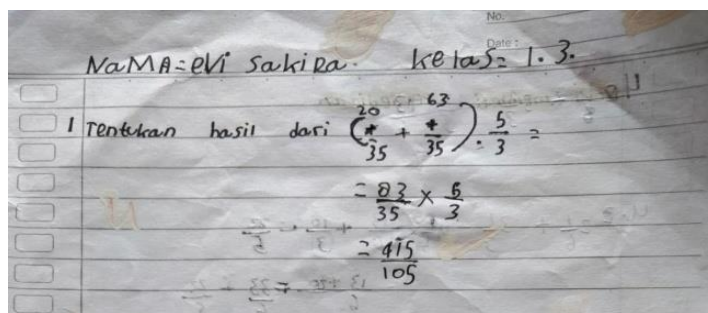 No.
Date:
NaMA=eVi Sakira. kelas= 1.3.
1 Tentukan hasil dari (20/35 + 63/35) . 5/3 =
= 83/35 × 5/3
= 415/105